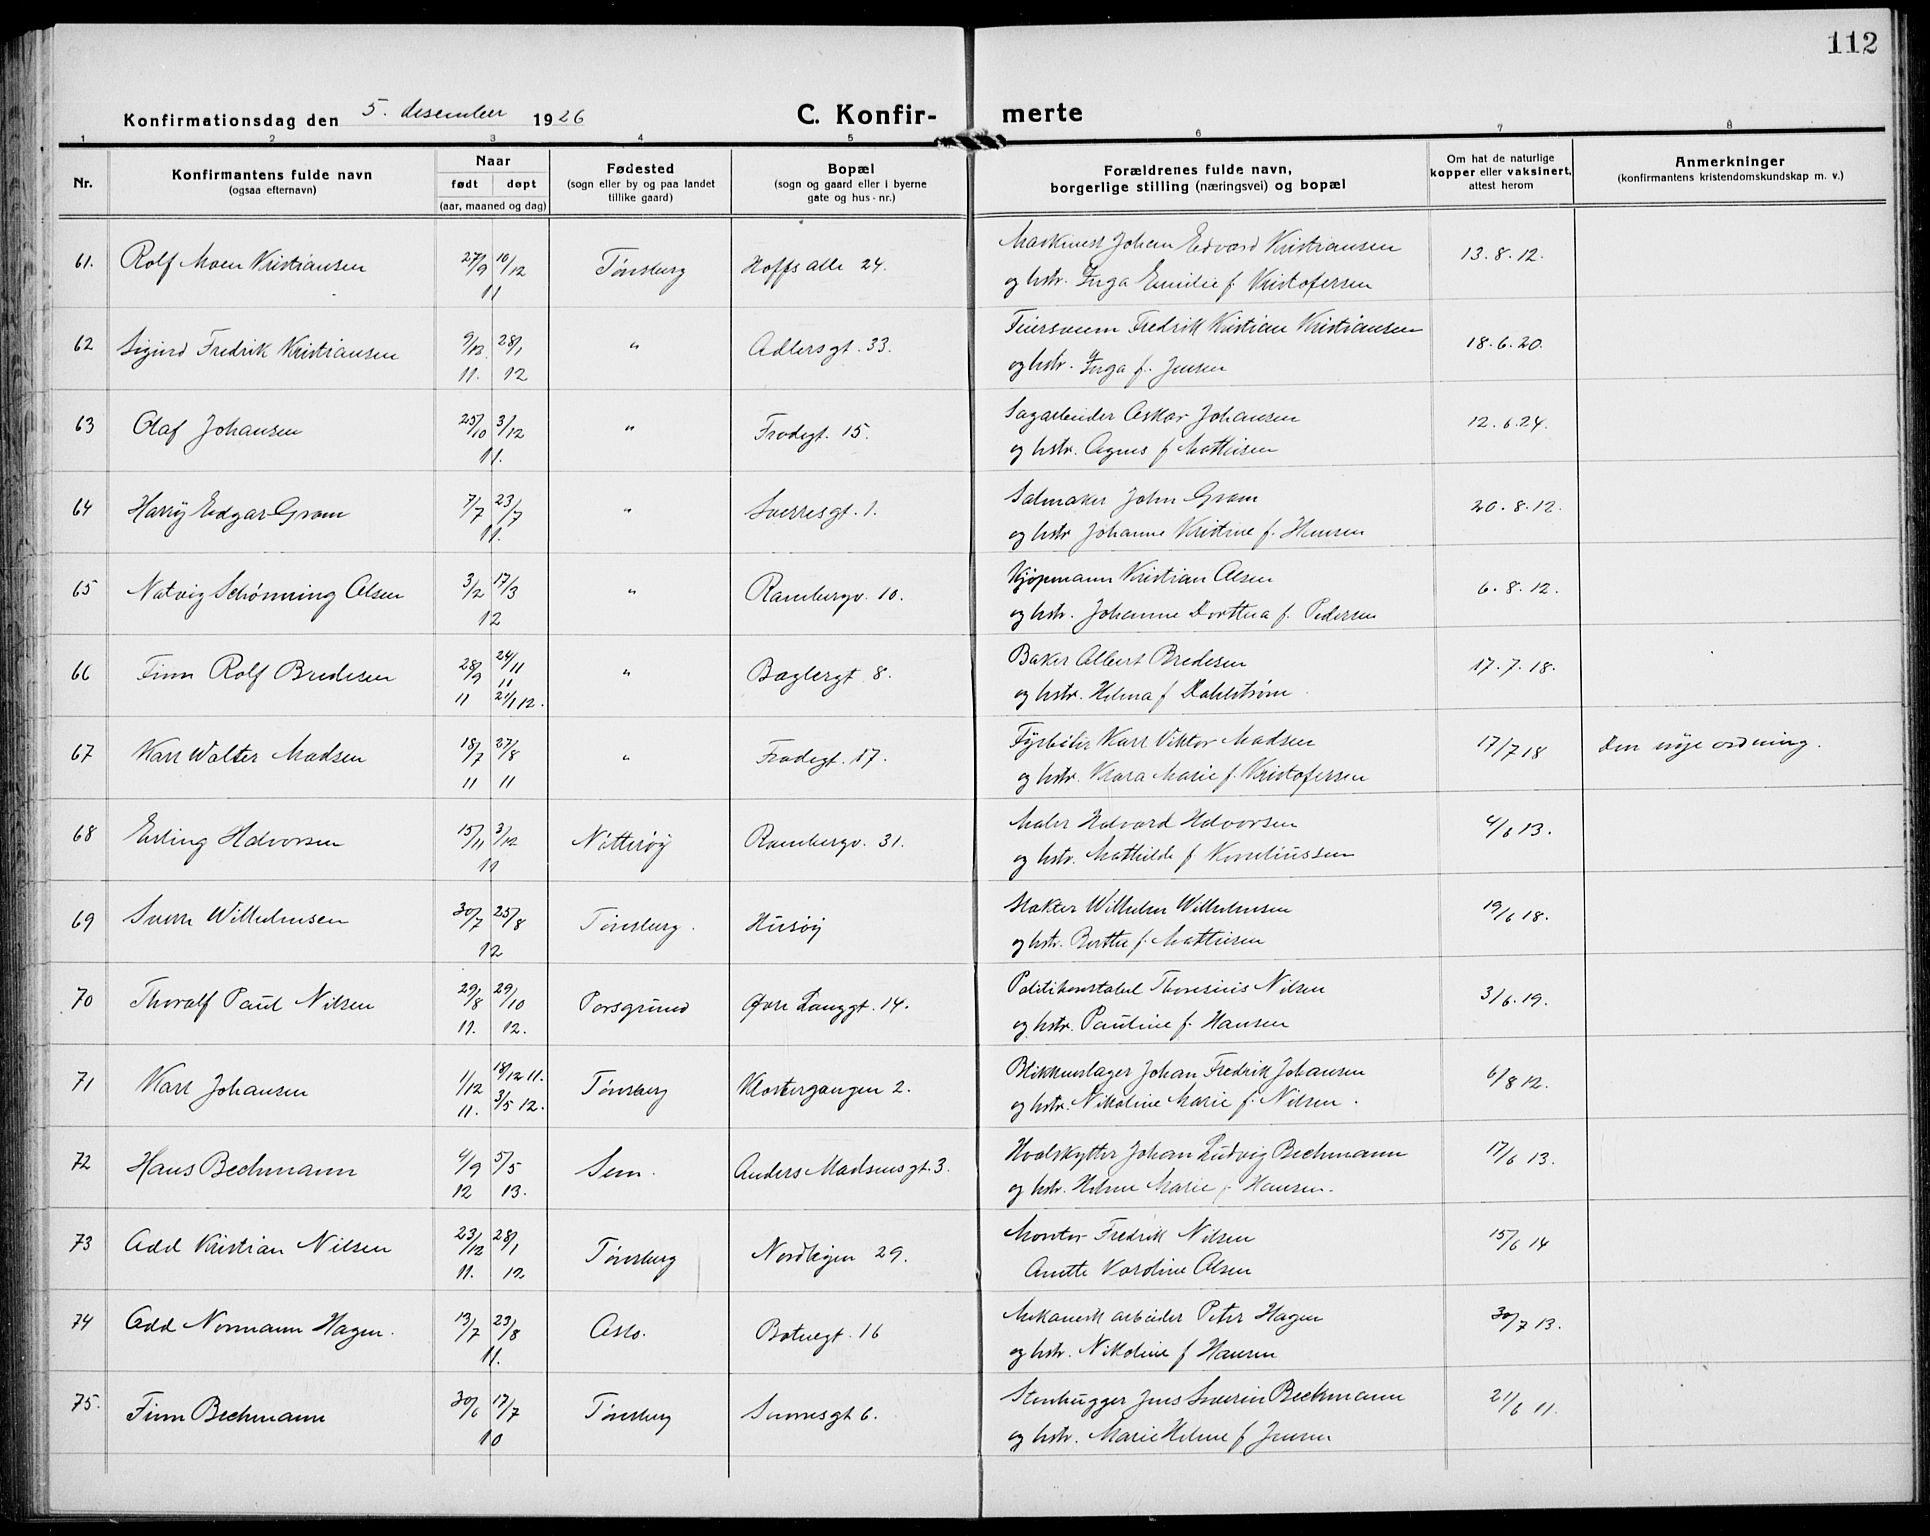 112
Konfirmationsdag den 5. desember 1926
C. Konfir- merte
1 2 3 4 5 6 7 8
Nr.
Konfirmantens fulde navn
(ogsaa efternavn)
Naar
født døpt
(aar, maaned og dag)
Fødested
(sogn eller by og paa landet
tillike gaard)
Bopæl
(sogn og gaard eller i byerne
gate og hus-nr.)
Forældrenes fulde navn,
borgerlige stilling (næringsvei) og bopæl
Om hat de naturlige
kopper eller vaksinert,
attest herom
Anmerkninger
(konfirmantens kristendomskundskap m. v.)
61. Rolf Moen Kristiansen 27/9 10/12 11 Tønsberg Hoffs alle 24. Maskinist Johan Edvard Kristiansen 13.8.12.
og hstr. Inga Emilie f. Kristofersen
62 Sigurd Fredrik Kristiansen 9/12 11. 28/1 12 " Adlersgt. 33. Feiersvenn Fredrik Kristian Kristiansen 18.6.20.
og hstr. Inga f. Jensen
63 Olaf Johansen 25/10 3/12 11. " Frodegt. 15. Sagarbeider Oskar Johansen 12.6.24.
og hstr. Agnes f Mathisen
64 Harry Edgar Gram 7/7 23/7 11. " Sverresgt. 1. Salmaker John Gram 20.8.12.
og hstr Johanne Kristine f. Hansen
65 Natvig Schønning Olsen 3/2 17/3 12 " Rambergv. 10. Kjøpmann Kristian Olsen 6.8.12.
og hstr. Johanne Dorthea f. Pedersen
66 Finn Rolf Bredesen 28/9 11 24/11 11 21/1 12. " Baglergt 8. Baker Albert Bredesen 17.7.18.
og hstr. Hilma f Dahlstrøm.
67 Karl Walter Madsen 18/7 11 27/8 11 " Frodegt. 17. Fyrbøter Karl Viktor Madsen 17/7 18 Den nye ordning.
og hstr. Klara Marie f. Kristofersen
68 Erling Halvorsen 15/11 3/12 11 Nøtterøy Rambergv. 31. Maler Halvard Halvorsen 4/6 13.
og hstr. Mathilde f Korneliussen
69 Sverre Wilhelmsen 30/7 25/8 12 Tønsberg. Husøy Slakter Wilhelm Wilhelmsen 19/6 18.
og hstr. Berthe f. Mathisen
70 Thoralf Paul Nilsen 29/8 11. 29/10 12. Porsgrund Øvre Langgt. 14. Politikonstabel Thoresius Nilsen 3/6.19.
og hstr. Pauline f. Hansen
71 Karl Johansen 1/12 11. 18/12 11. 3/5 12. Tønsberg Klostergangen 2. Blikkenslager Johan Fredrik Johansen 6/8 12.
og hstr. Nikoline Marie f. Nilsen.
72 Hans Bechmann 4/9 12 5/5 13. Sem. Anders Madsensgt. 3. Hvalskytter Johan Ludvig Bechmann 17/6 13.
og hstr. Helene Marie f Hansen.
73 Odd Kristian Nilsen 23/12 11. 28/1 12 Tønsberg Nordbyen 29. Montør Fredrik Nilsen 15/6 14
Anette Karoline Olsen
74 Odd Normann Hagen. 13/7 23/8 11. Oslo. Botnegt. 16 Mekanisk arbeider Peter Hagen 30/7 13.
og hstr. Nikoline f Hansen
75. Finn Bechmann 30/6 17/7 10 Tønsberg Sverresgt 6. Stenhugger Jens Severin Bechmann 21/6 11.
og hstr. Marie Helene f Jensen